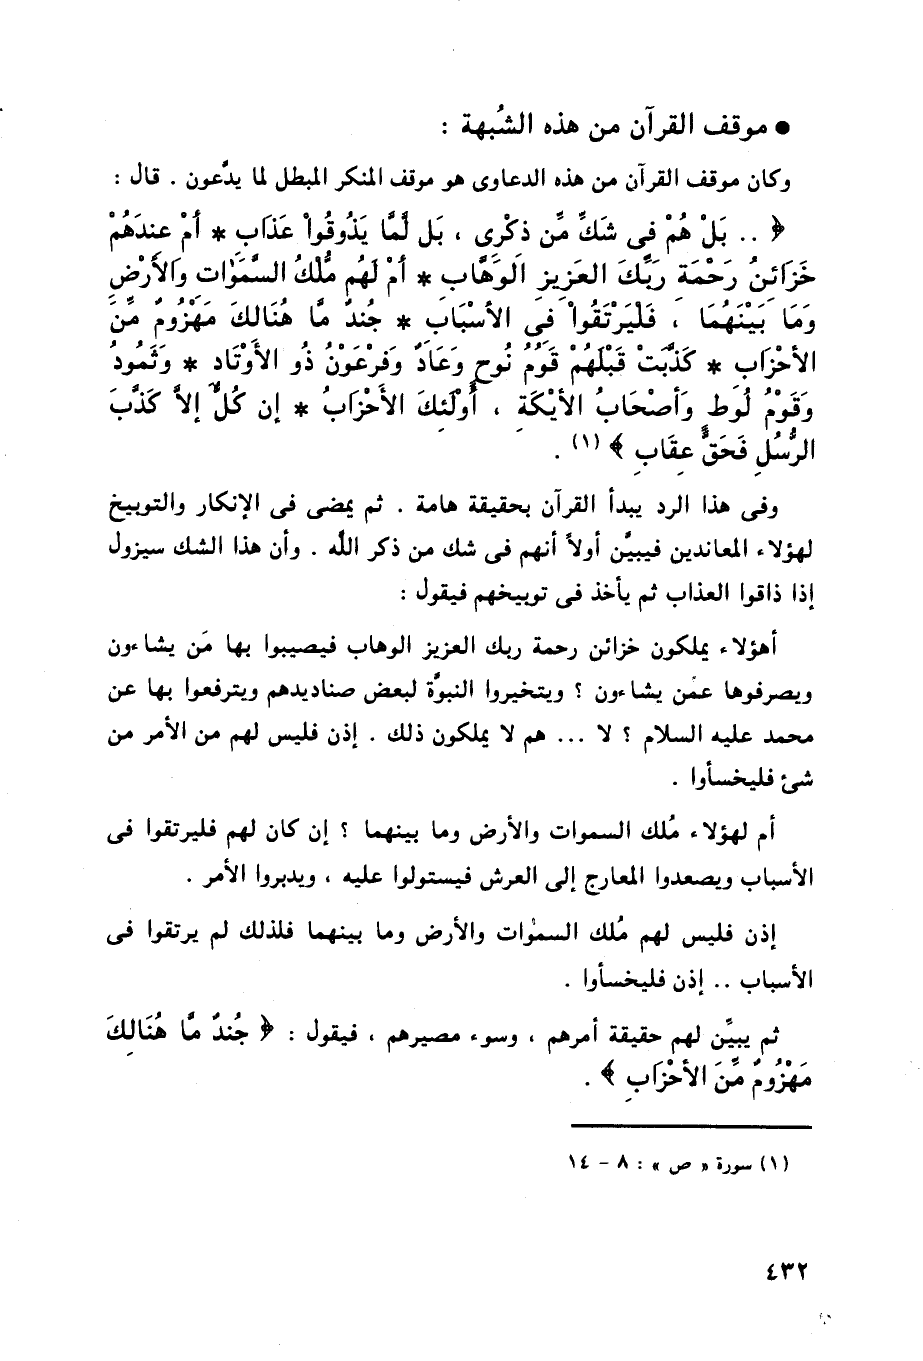 ● موقف القرآن من هذه الشُبهة :
وكان موقف القرآن من هذه الدعاوى هو موقف المنكر المبطل لما يدَّعون . قال :
﴿ .. بَلْ هُمْ فِى شَكٍّ مِّن ذِكْرِى ، بَل لَّمَّا يَذُوقُواْ عَذَابِ * أَمْ عِندَهُمْ
خَزَائِنُ رَحْمَةِ رَبِّكَ العَزِيزِ الوَهَّابِ * أَمْ لَهُم مُّلْكُ السَّمَوَاتِ وَالأَرْضِ
وَمَا بَيْنَهُمَا ، فَلْيَرْتَقُواْ فِى الأَسْبَابِ * جُندٌ مَّا هُنَالِكَ مَهْزُومٌ مِّنَ
الأَحْزَابِ * كَذَّبَتْ قَبْلَهُمْ قَوْمُ نُوحٍ وَعَادٌ وَفِرْعَوْنُ ذُو الأَوْتَادِ * وَثَمُودُ
وَقَوْمُ لُوطٍ وَأَصْحَابُ الأَيْكَةِ ، أُولَئِكَ الأَحْزَابُ * إِن كُلٌّ إِلاَّ كَذَّبَ
الرُّسُلَ فَحَقَّ عِقَابِ ﴾ (١) .
وفى هذا الرد يبدأ القرآن بحقيقة هامة . ثم يمضى فى الإنكار والتوبيخ
لهؤلاء المعاندين فيبيِّن أولاً أنهم فى شك من ذكر الله . وأن هذا الشك سيزول
إذا ذاقوا العذاب ثم يأخذ فى توبيخهم فيقول :
أهؤلاء يملكون خزائن رحمة ربك العزيز الوهاب فيصيبوا بها مَن يشاءون
ويصرفوها عمَّن يشاءون ؟ ويتخيروا النبوَّة لبعض صناديدهم ويترفعوا بها عن
محمد عليه السلام ؟ لا ... هم لا يملكون ذلك . إذن فليس لهم من الأمر من
شئ فليخسأوا .
أم لهؤلاء مُلك السموات والأرض وما بينهما ؟ إن كان لهم فليرتقوا فى
الأسباب ويصعدوا المعارج إلى العرش فيستولوا عليه ، ويدبروا الأمر .
إذن فليس لهم مُلك السموٰات والأرض وما بينهما فلذلك لم يرتقوا فى
الأسباب .. إذن فليخسأوا .
ثم يبيِّن لهم حقيقة أمرهم ، وسوء مصيرهم ، فيقول : ﴿ جُندٌ مَّا هُنَالِكَ
مَهْزُومٌ مِّنَ الأَحْزَابِ ﴾ .
(١) سورة « ص » : ٨ - ١٤
٤٣٢